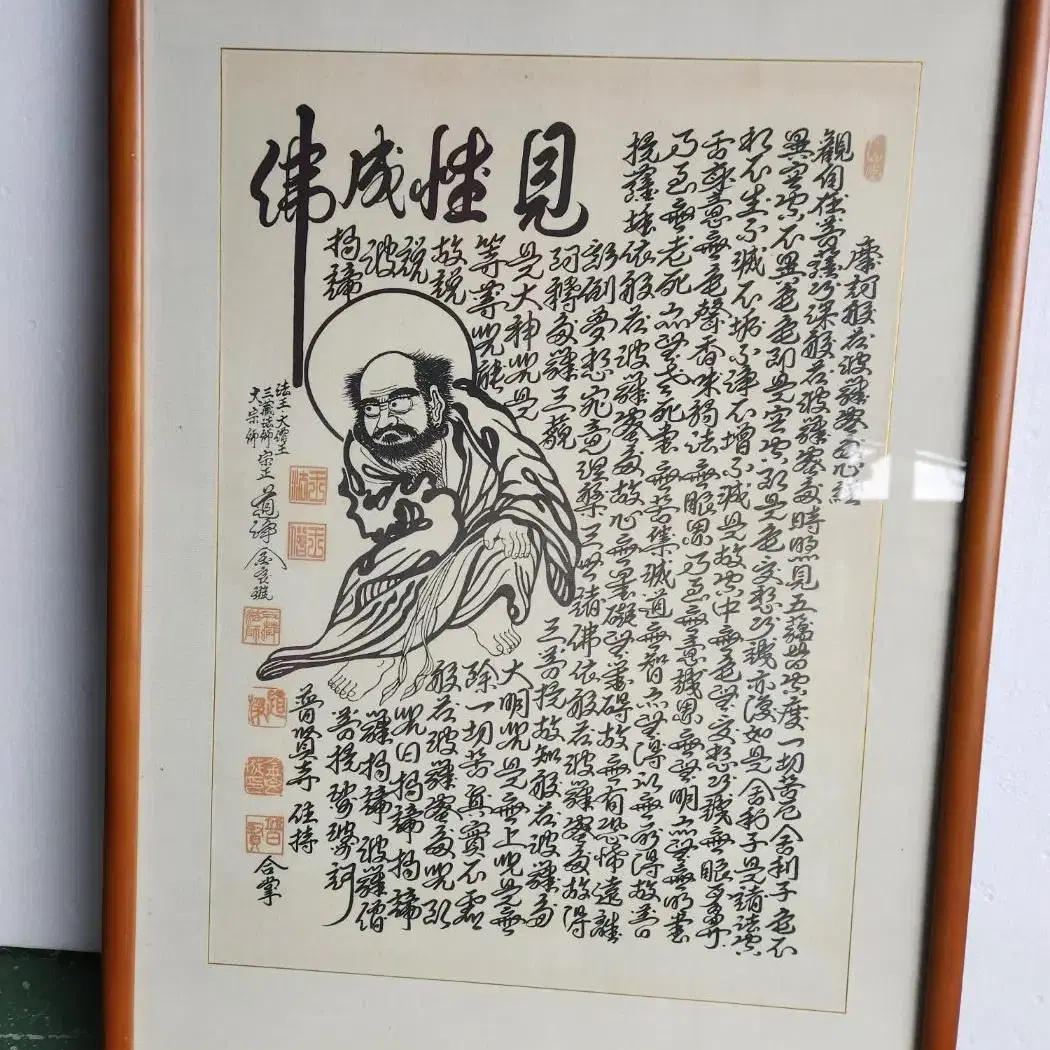 見性成佛
摩訶般若波羅蜜多心經
觀自在菩薩行深般若波羅蜜多時照見五蘊皆空度一切苦厄舍利子色不
異空空不異色色即是空空即是色受想行識亦復如是舍利子是諸法空
相不生不滅不垢不淨不增不減是故空中無色無受想行識無眼耳鼻
舌身意無色聲香味觸法無眼界乃至無意識界無無明亦無無明盡
乃至無老死亦無老死盡無苦集滅道無智亦無得以無所得故菩
提薩埵依般若波羅蜜多故心無罣礙無罣礙故無有恐怖遠離
顛倒夢想究竟涅槃三世諸佛依般若波羅蜜多故得
阿耨多羅三藐三菩提故知般若波羅蜜多
是大神咒是大明咒是無上咒是無
等等咒能除一切苦真實不虛
故說般若波羅蜜多咒即
說咒曰揭諦揭諦
波羅揭諦波羅僧
揭諦菩提薩婆訶
法王大僧王
三藏法師宗正道淨
大宗師
普賢寺住持
合掌
法王
僧王
三藏法師
道淨
普賢